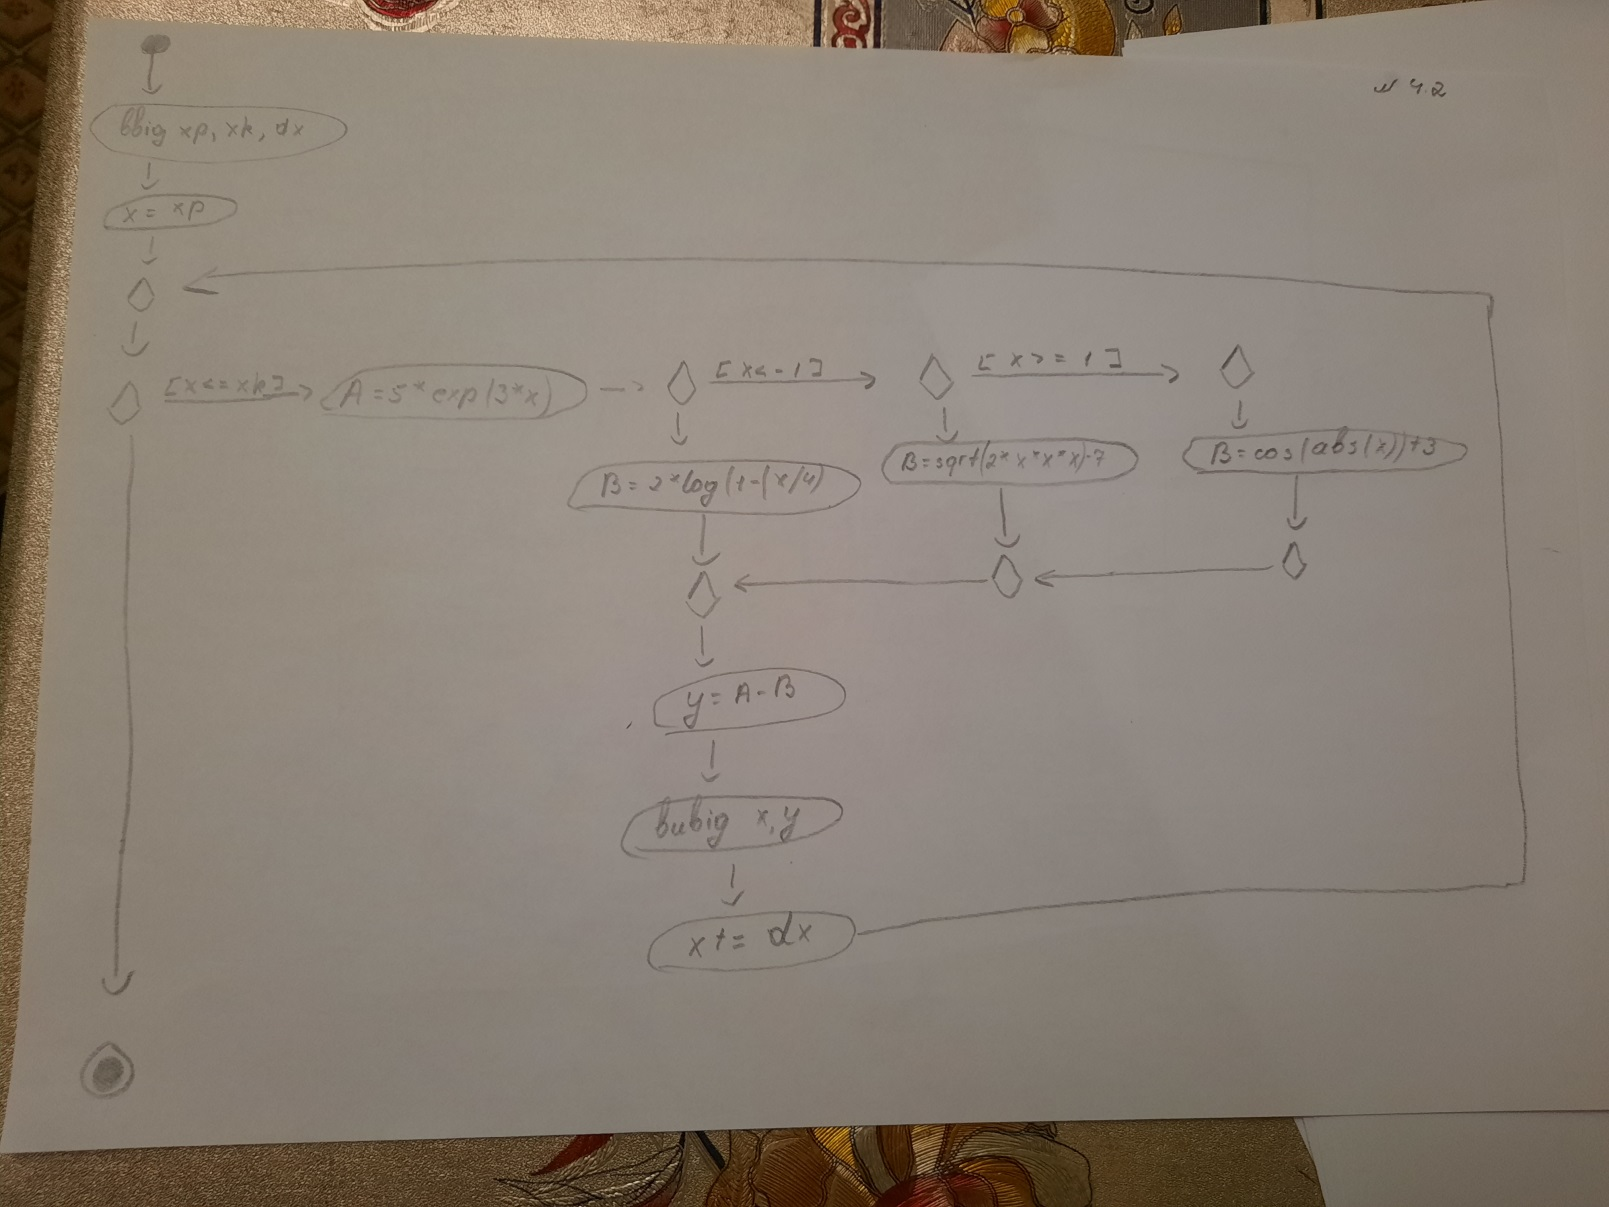 № 4.2
ввід xp, xk, dx
x = xp
[x<=xk]
A = 5*exp(3*x)
[x<-1]
[x>=1]
B = 2*log(1-(x/4)
B=sqrt(2*x*x*x)-7
B=cos(abs(x))+3
y = A-B
вивід x, y
x+= dx